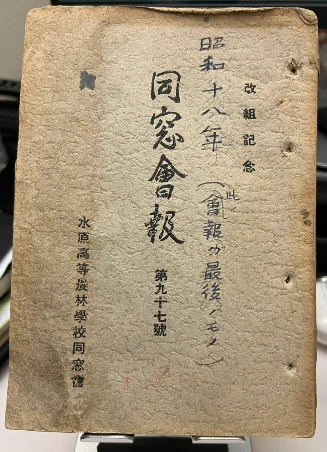 改組記念
昭和十八年（此會報ガ最後ノモノ）
同窓會報
第九十七號
水原高等農林學校同窓會